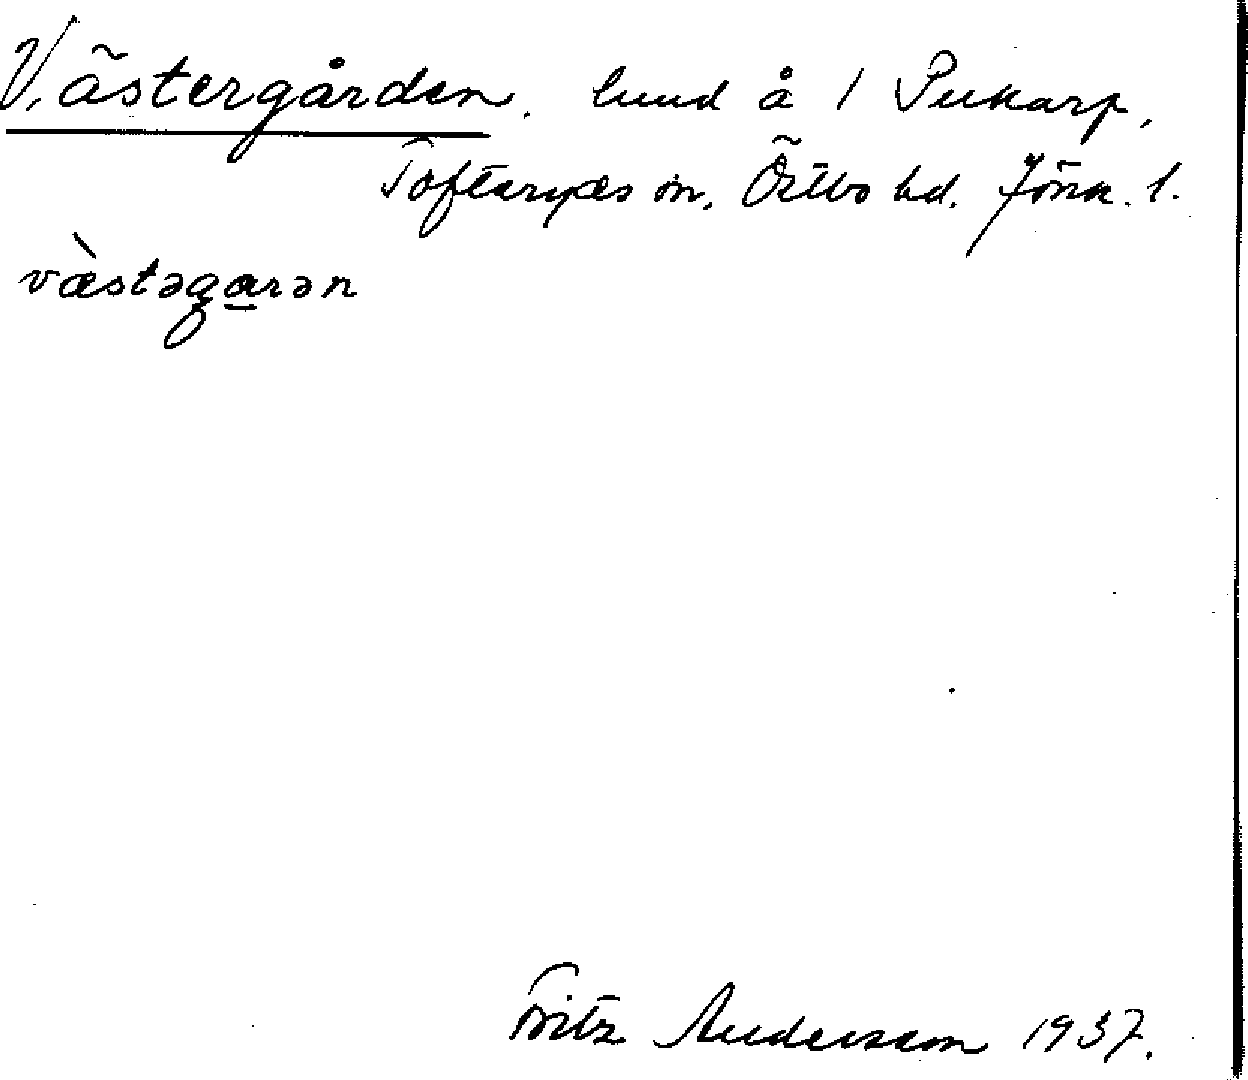 Västergården. lund å 1 Pukarp,
Tofteryds sn, Östbo hd. Jönk. l.
væ̀stəgarən
Fritz Andersson 1937.